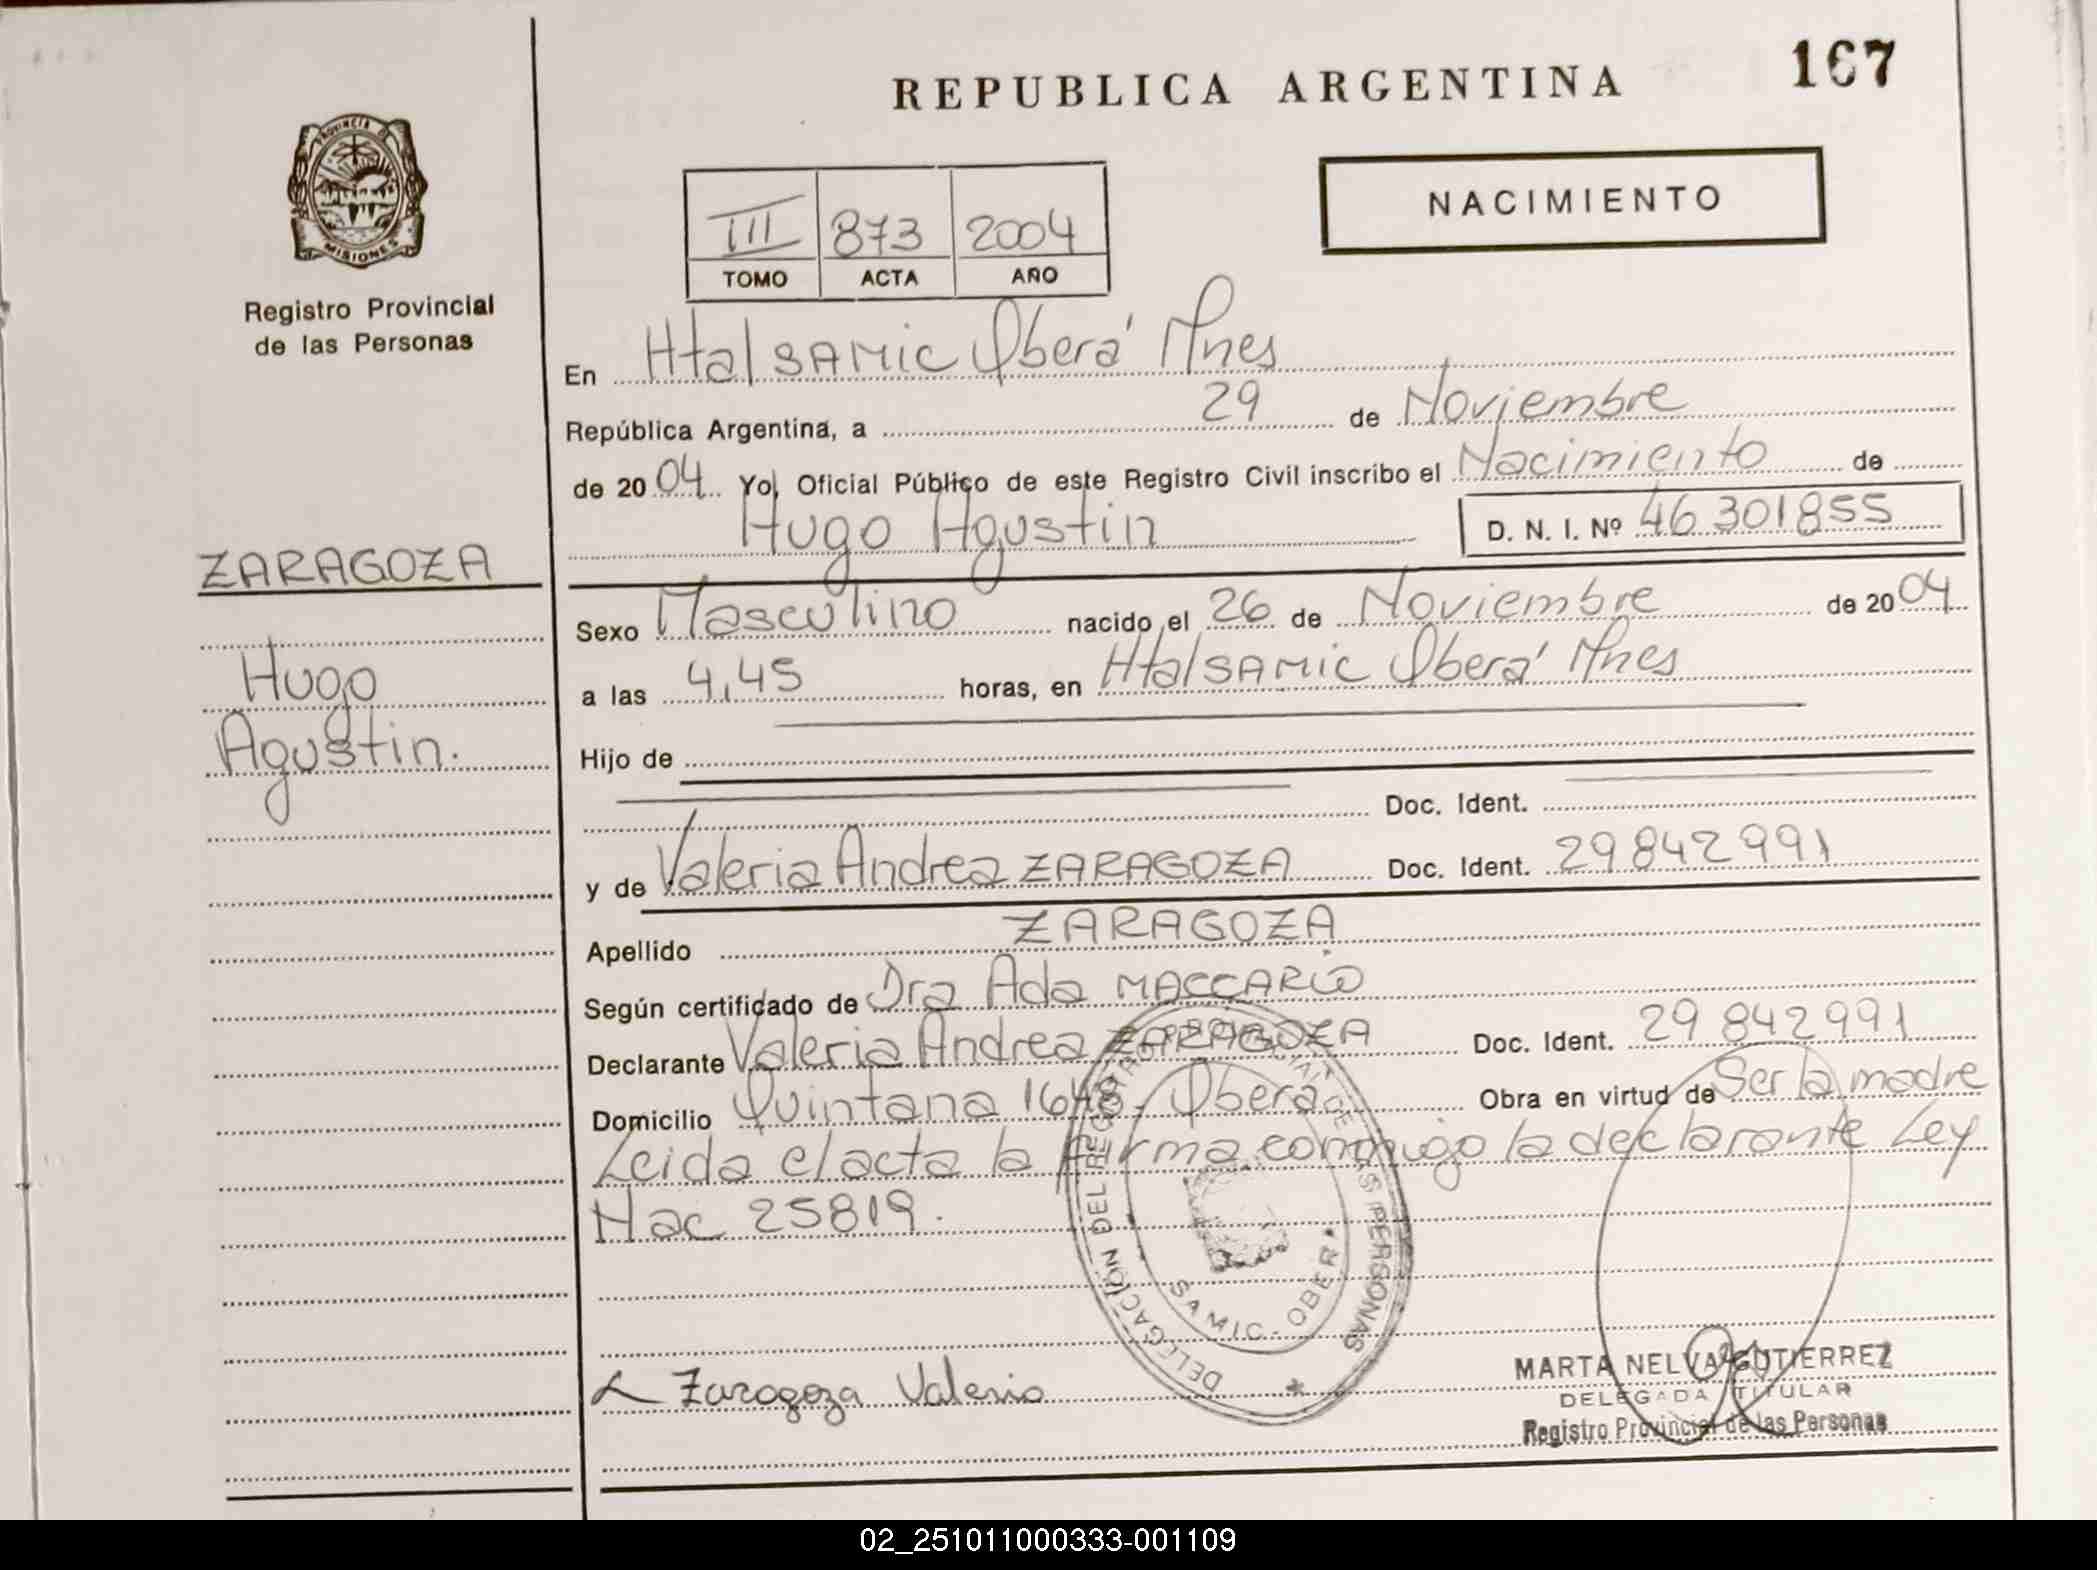 REPUBLICA ARGENTINA
167
PROVINCIA D
MISIONES
Registro Provincial
de las Personas
NACIMIENTO
III 873 2004
TOMO ACTA AÑO
En Htal SAMIC Oberá Mnes
República Argentina, a 29 de Noviembre
de 2004 Yo, Oficial Público de este Registro Civil inscribo el Nacimiento de
Hugo Agustin D. N. I. Nº 46301855
ZARAGOZA
Hugo
Agustin.
Sexo Masculino nacido el 26 de Noviembre de 2004
a las 4,45 horas, en Htal SAMIC Oberá Mnes
Hijo de
Doc. Ident.
y de Valeria Andrea ZARAGOZA Doc. Ident. 29842991
Apellido ZARAGOZA
Según certificado de Dra Ada MACCARIO
Declarante Valeria Andrea ZARAGOZA Doc. Ident. 29842991
Domicilio Quintana 1648 - Obera Obra en virtud de Ser la madre
Leida el acta la firma conmigo la declarante Ley
Nac 25819.
DELEGACIÓN DEL DE LAS PERSONAS
SAMIC - OBERA
Zaragoza Valeria
MARTA NELVA GUTIERREZ
DELEGADA TITULAR
Registro Provincial de las Personas
02_251011000333-001109